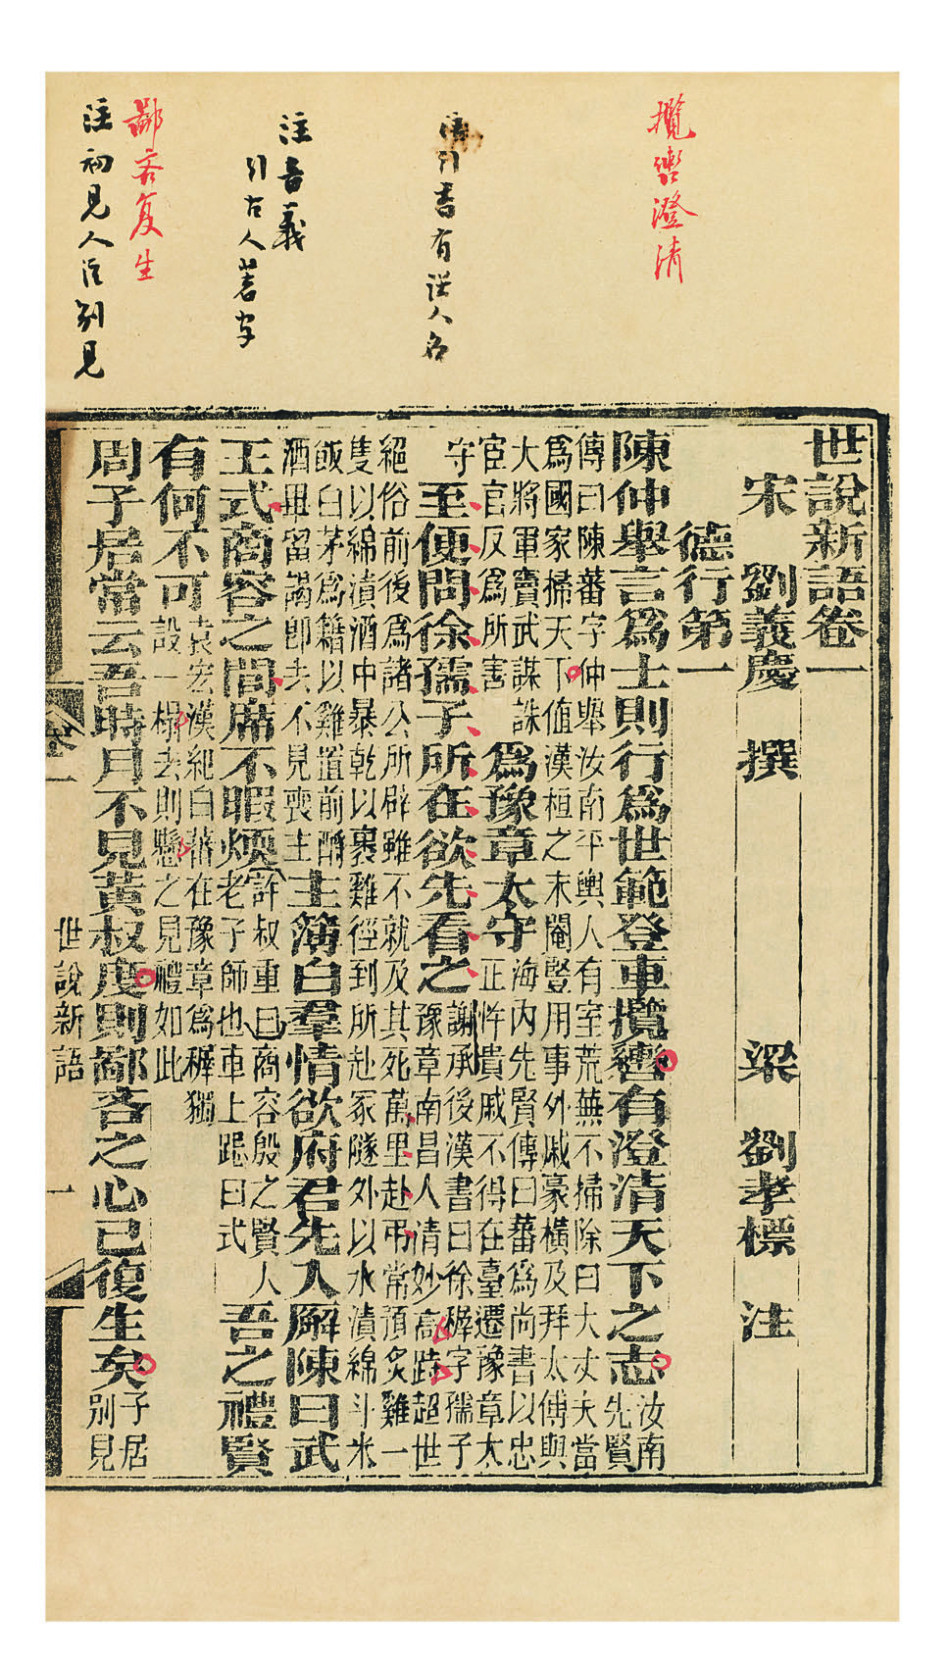 攬轡澄清
引書有人名
注音義
引古人著字
鄙吝复生
注初見人注別見
世說新語卷一
宋 劉義慶 撰 梁 劉孝標 注
德行第一
陳仲舉言爲士則行爲世範登車攬轡有澄清天下之志汝南先賢
傳曰陳蕃字仲舉汝南平輿人有室荒蕪不掃除曰大丈夫當
爲國家掃天下值漢桓之末閹豎用事外戚豪橫及拜太傅與
大將軍竇武謀誅
宦官反爲所害
爲豫章太守
海內先賢傳曰蕃爲尚書以忠
正忤貴戚不得在臺遷豫章太
守
至便問徐孺子所在欲先看之
謝承後漢書曰徐穉字孺子
豫章南昌人清妙高跱超世
絕俗前後爲諸公所辟雖不就及其死萬里赴弔常預炙雞一
隻以綿漬酒中暴乾以裹雞徑到所赴冢隧外以水漬綿斗米
飯白茅爲藉以雞置前酹
酒畢留謁卽去不見喪主
主簿白羣情欲府君先入廨陳曰武
王式商容之閭席不暇煖
許叔重曰商容殷之賢人
老子師也車上跽曰式
吾之禮賢
有何不可
袁宏漢紀曰蕃在豫章爲穉獨
設一榻去則懸之見禮如此
周子居常云吾時月不見黃叔度則鄙吝之心已復生矣
子居
別見
卷一
世說新語
一